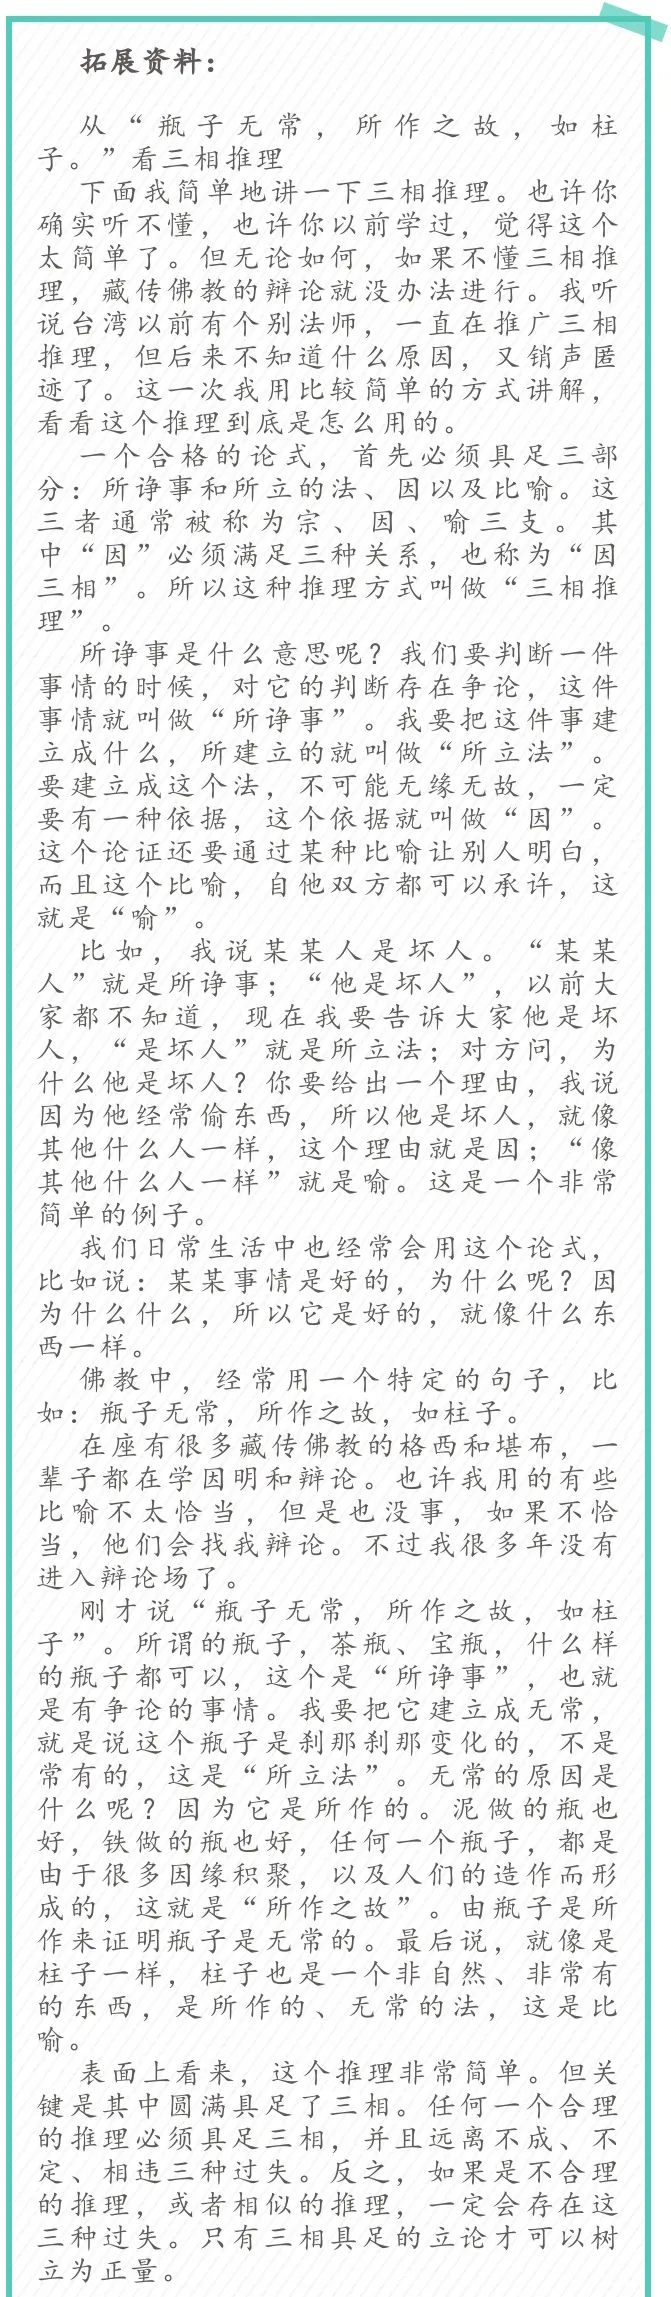 拓展资料：
从“瓶子无常，所作之故，如柱
子。”看三相推理
下面我简单地讲一下三相推理。也许你
确实听不懂，也许你以前学过，觉得这个
太简单了。但无论如何，如果不懂三相推
理，藏传佛教的辩论就没办法进行。我听
说台湾以前有个别法师，一直在推广三相
推理，但后来不知道什么原因，又销声匿
迹了。这一次我用比较简单的方式讲解，
看看这个推理到底是怎么用的。
一个合格的论式，首先必须具足三部
分：所诤事和所立的法、因以及比喻。这
三者通常被称为宗、因、喻三支。其
中“因”必须满足三种关系，也称为“因
三相”。所以这种推理方式叫做“三相推
理”。
所诤事是什么意思呢？我们要判断一件
事情的时候，对它的判断存在争论，这件
事情就叫做“所诤事”。我要把这件事建
立成什么，所建立的就叫做“所立法”。
要建立成这个法，不可能无缘无故，一定
要有一种依据，这个依据就叫做“因”。
这个论证还要通过某种比喻让别人明白，
而且这个比喻，自他双方都可以承许，这
就是“喻”。
比如，我说某某人是坏人。“某某
人”就是所诤事；“他是坏人”，以前大
家都不知道，现在我要告诉大家他是坏
人，“是坏人”就是所立法；对方问，为
什么他是坏人？你要给出一个理由，我说
因为他经常偷东西，所以他是坏人，就像
其他什么人一样，这个理由就是因；“像
其他什么人一样”就是喻。这是一个非常
简单的例子。
我们日常生活中也经常会用这个论式，
比如说：某某事情是好的，为什么呢？因
为什么什么，所以它是好的，就像什么东
西一样。
佛教中，经常用一个特定的句子，比
如：瓶子无常，所作之故，如柱子。
在座有很多藏传佛教的格西和堪布，一
辈子都在学因明和辩论。也许我用的有些
比喻不太恰当，但是也没事，如果不恰
当，他们会找我辩论。不过我很多年没有
进入辩论场了。
刚才说“瓶子无常，所作之故，如柱
子”。所谓的瓶子，茶瓶、宝瓶，什么样
的瓶子都可以，这个是“所诤事”，也就
是有争论的事情。我要把它建立成无常，
就是说这个瓶子是刹那刹那变化的，不是
常有的，这是“所立法”。无常的原因是
什么呢？因为它是所作的。泥做的瓶也
好，铁做的瓶也好，任何一个瓶子，都是
由于很多因缘积聚，以及人们的造作而形
成的，这就是“所作之故”。由瓶子是所
作来证明瓶子是无常的。最后说，就像是
柱子一样，柱子也是一个非自然、非常有
的东西，是所作的、无常的法，这是比
喻。
表面上看来，这个推理非常简单。但关
键是其中圆满具足了三相。任何一个合理
的推理必须具足三相，并且远离不成、不
定、相违三种过失。反之，如果是不合理
的推理，或者相似的推理，一定会存在这
三种过失。只有三相具足的立论才可以树
立为正量。